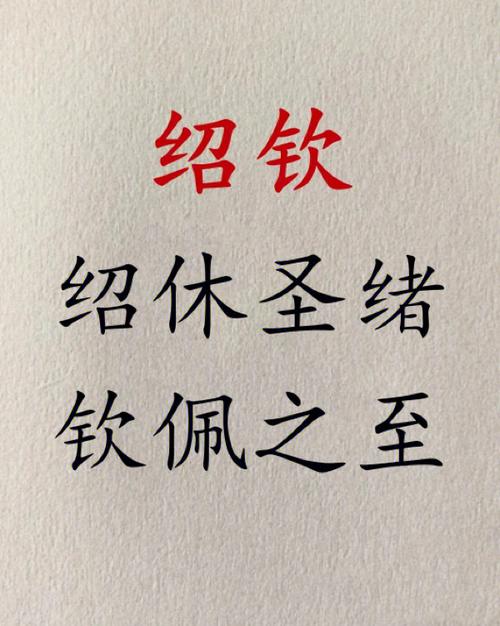 绍钦
绍休圣绪
钦佩之至